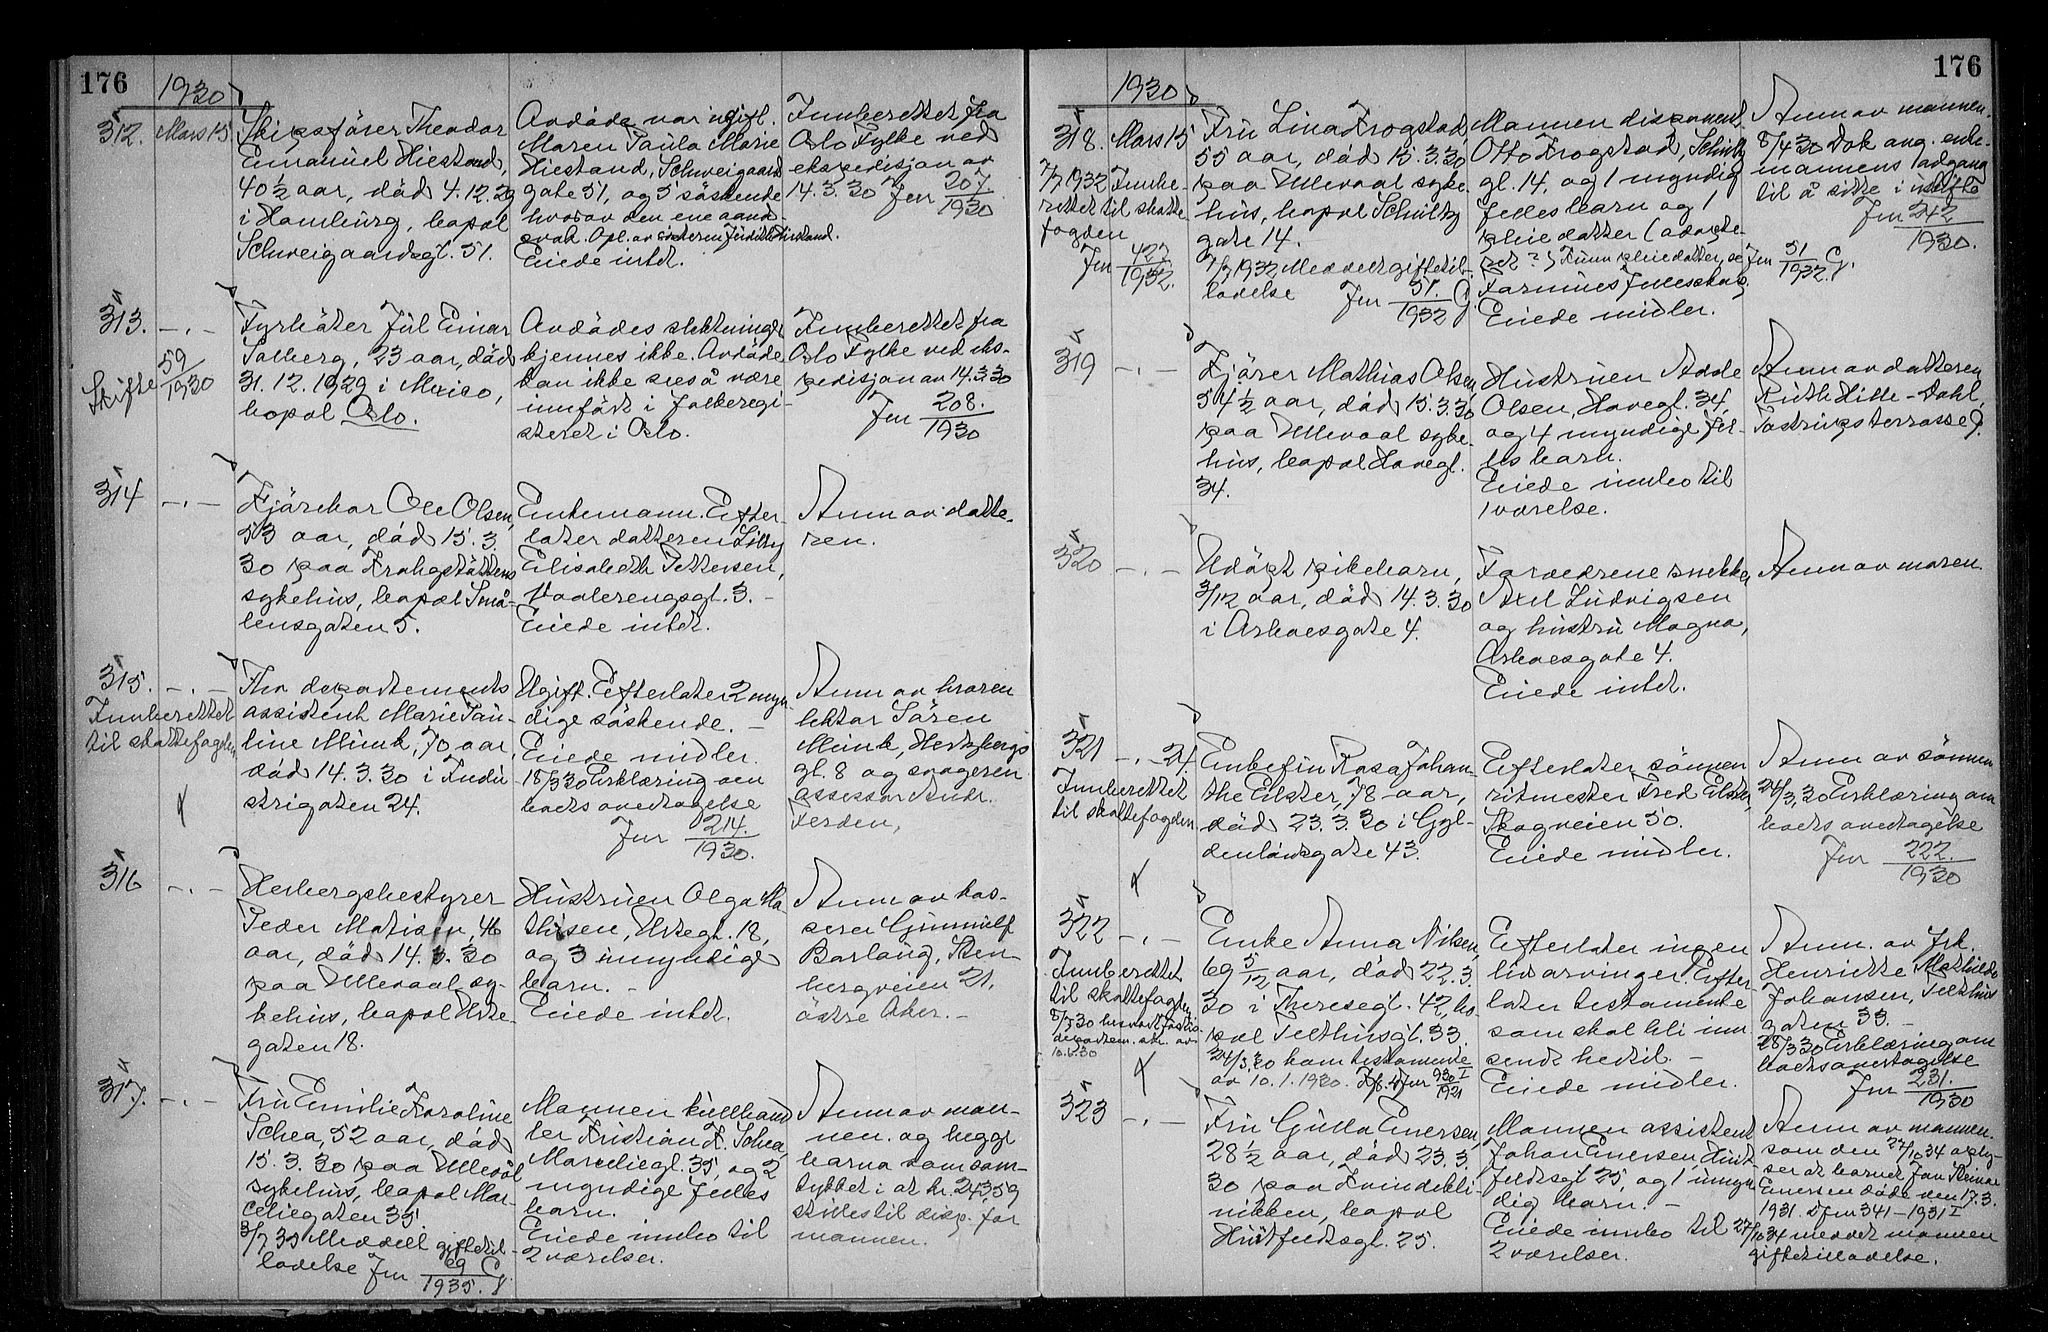 176
1930
312. Mars 15.
Skipsfører Theodor
Emanuel Hiestand,
40 1/2 aar, död 4.12.29
i Hamburg, bopæl
Schweigaardsgt. 51.
Avdöde var ugift.
Maren Paula Marie
Hiestand, Schweigaards
gate 51, og 5 söskende
hvorav den ene aands-
svak. Opl. av søsteren Judith Hiestand.
Eiede intet.
Innberettet fra
Oslo Fylke ved
ekspedisjon av
14.3.30 Jnr 207/1930
313. -.-
Skifte 59/1930
Fyrböter Jul Einar
Solberg, 23 aar, död
31.12.1929 i Mexico,
bopæl Oslo.
Avdödes slektninger
kjennes ikke. Avdöde
kan ikke sees å være
innfört i folkeregi-
steret i Oslo.
Innberettet fra
Oslo Fylke ved eks-
pedisjon av 14.3.30
Jnr 208./1930
314 -.-
Kjörekar Ole Olsen,
53 aar, död 15.3.
30 paa Krohgstöttens
sykehus, bopæl Små-
lensgaten 5.
Enkemann. Efter-
later datteren Lilly
Elisabeth Pettersen,
Vaalerengsgt. 3. -
Eiede intet.
Anm av datte-
ren.
315. -.-
Innberettet
til skattefogden
Frk departements
assistent Marie Pau-
line Munk, 70 aar,
död 14.3.30 i Indu
strigaten 24.
Ugift. Efterlater 2 myn
dige söskende. -
Eiede midler.
18/3 30 Erklæring om
boets overtagelse
Jnr 214./1930.
Anm av broren
lektor Sören
Munk, Hertzbergs
gt. 8 og svogeren
assessor Andr.
Ferden,
316 -.-
Herbergsbestyrer
Peder Matisen, 46
aar, död 14.3.30
paa Ullevaal sy-
kehus, bopæl Urte-
gaten 18.
Hustruen Olga Ma-
thisen, Urtegt. 18,
og 3 umyndige
barn. -
Eiede intet.
Anm av kas-
serer Gunnulf
Borlaug, Sten-
bergveien 21,
östre Aker. -
317. -.-
Fru Emilie Karoline
Schea, 52 aar, död
15.3.30 paa Ullevål
sykehus, bopæl Mar-
celiegaten 35.
3/7 35 Meddelt giftetil-
ladelse Jnr 69/1935. G
Mannen kullhand
ler Kristian F. Schea,
Marceliegt. 35, og 2
myndige felles
barn.
Eiede innbo til
2 værelser.
Anm av man-
nen. og begge
barna som sam-
tykket i at kr. 243,59
stilles til disp. for
mannen.
176
1930
318. Mars 15
7/7 1932 Innbe-
rettet til skatte
fogden
Jnr 427/1932.
Fru Lina Frogstad,
55 aar, död 15.3.30
paa Ullevaal syke-
hus, bopæl Schultz
gate 14.
7/7 1932 Meddelt giftetil-
ladelse Jnr 51./1932 G.
Mannen disponent
Otto Frogstad, Schultz
gt. 14, og 1 myndig
felles barn og 1
pleiedatter (adopte-
ret?) Kun pleiedatter, se Jnr 51/1932 G.
Formues felleskap
Eiede midler.
Anm av mannen.
8/4 30 Dok ang. enke-
mannens adgang
til å sitte i uskifte
Jnr 242/1930.
319 -.-
Kjörer Mathias Olsen,
54 1/2 aar, död 15.3.30
paa Ullevaal syke-
hus, bopæl Havegt.
34.
Hustruen Adde
Olsen, Havegt. 34,
og 4 myndige fel-
les barn.
Eiede innbo til
1 værelse.
Anm av datteren
Ruth Hille-Dahl,
Tostrups terrasse 9.
320 -.-
Udöpt pikebarn,
3/12 aar, död 14.3.30
i Askoesgate 4.
Foreldrene snekker
Axel Ludvigsen
og hustru Magna,
Askoesgate 4.
Eiede intet.
Anm av moren.
321 -.- 24.
Innberettet
til skattefogden
Enkefru Rosa Johan-
the Elster, 78 aar,
död 23.3.30 i Gyl-
denlövesgate 43.
Efterlater sönnen
ritmester Fred Elster,
Skogveien 50.
Eiede midler.
Anm av sönnen
24/3 30 Erklæring om
boets overtagelse
Jnr 222./1930
322 -.-
Innberettet
til skattefogden
Enke Anna Nilsen,
69 5/12 aar, död 22.3.
30 i Theresegt. 42, bo-
pæl Telthusgt. 33.
24/3 30 kom testamente
av 10.1.1930.
Efterlater ingen
livsarvinger. Efter-
later testamente
som skal bli inn
sendt hertil. -
Eiede midler.
Anm. av frk.
Henriette Mathilde
Johansen, Telthus
gaten 33. -
28/3 30 Erklæring om
boets overtagelse
Jnr 231./1930
323 -.-
Fru Gulla Enersen,
28 1/2 aar, död 23.3.
30 paa Kvindekli-
nikken, bopæl
Huitfeldtsgt. 25.
Mannen assistent
Johan Enersen, Huit-
feldtsgt 25, og 1 umyn
dig barn. -
Eiede innbo til
2 værelser.
Anm av mannen.
som den 27/10 34 oply-
ser at barnet Jan Reinar
Enersen döde den 17.3.
1931. Jfr Jnr 341-1931 I
27/10 34 meddelt mannen
giftetilladelse.